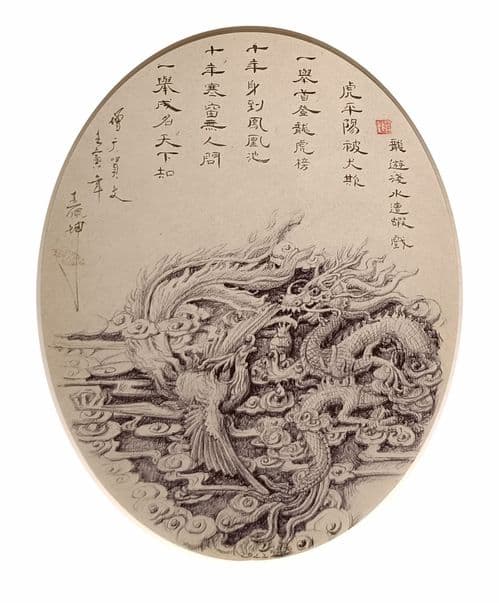 龍遊淺水遭蝦戲
虎平陽被犬欺
一舉首登龍虎榜
十年身到鳳凰池
十年寒窗無人問
一舉成名天下知
增广賢文
壬寅年